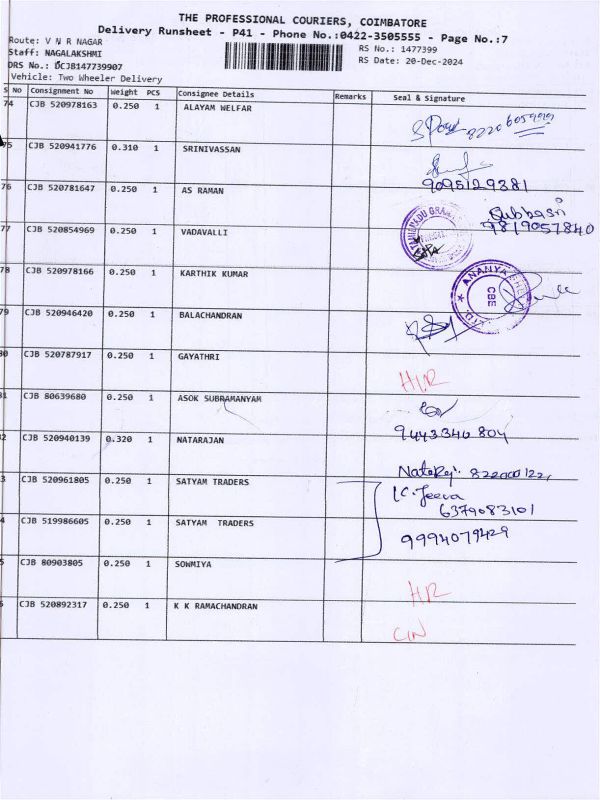 THE PROFESSIONAL COURIERS, COIMBATORE
Delivery Runsheet - P41 - Phone No.:0422-3505555 - Page No.:7
Route: V N R NAGAR
RS No.: 1477399
Staff: NAGALAKSHMI
RS Date: 20-Dec-2024
DRS No.: DCJB147739907
Vehicle: Two Wheeler Delivery
S No Consignment No Weight PCS Consignee Details Remarks Seal & Signature
74 CJB 520978163 0.250 1 ALAYAM WELFAR
75 CJB 520941776 0.310 1 SRINIVASSAN
9095129381
76 CJB 520781647 0.250 1 AS RAMAN
Subbasri
77 CJB 520854969 0.250 1 VADAVALLI 9819057840
78 CJB 520978166 0.250 1 KARTHIK KUMAR
ANANYA CBE
79 CJB 520946420 0.250 1 BALACHANDRAN
80 CJB 520787917 0.250 1 GAYATHRI
81 CJB 80639680 0.250 1 ASOK SUBRAMANYAM
9443340804
82 CJB 520940139 0.320 1 NATARAJAN
83 CJB 520961805 0.250 1 SATYAM TRADERS
Jeeva
6379083101
84 CJB 519986605 0.250 1 SATYAM TRADERS
9994079429
5 CJB 80903805 0.250 1 SOWMIYA
6 CJB 520892317 0.250 1 K K RAMACHANDRAN